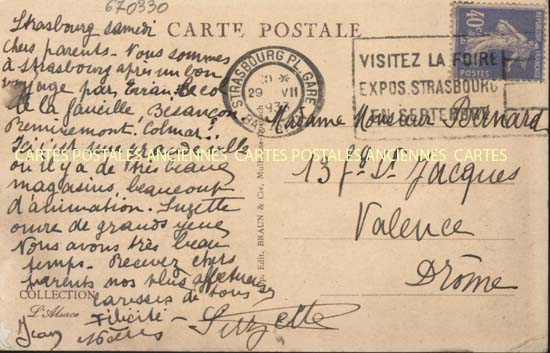 670330
CARTE POSTALE
Strasbourg samedi
chers parents. Nous sommes
à Strasbourg après un bon
voyage par
le col
de la faucille, Besançon
Remiremont. Colmar.
grande ville
où il y a de très beaux
magasins, beaucoup
d'animation. Suzette
ouvre de grands yeux
Nous avons très beau
temps. Recevez chers
parents nos plus affectueuses
caresses de tous
Félicité - Suzette
Jean
COLLECTION
L'Alsace
Edit. BRAUN & Cie,
STRASBOURG PL. GARE
29 VII
VISITEZ LA FOIRE
EXPOS. STRASBOURG
EN SEPTEMBRE
40
Madame Monsieur Bernard
13 Fg St Jacques
Valence
Drôme
CARTES POSTALES ANCIENNES CARTES POSTALES ANCIENNES CARTES